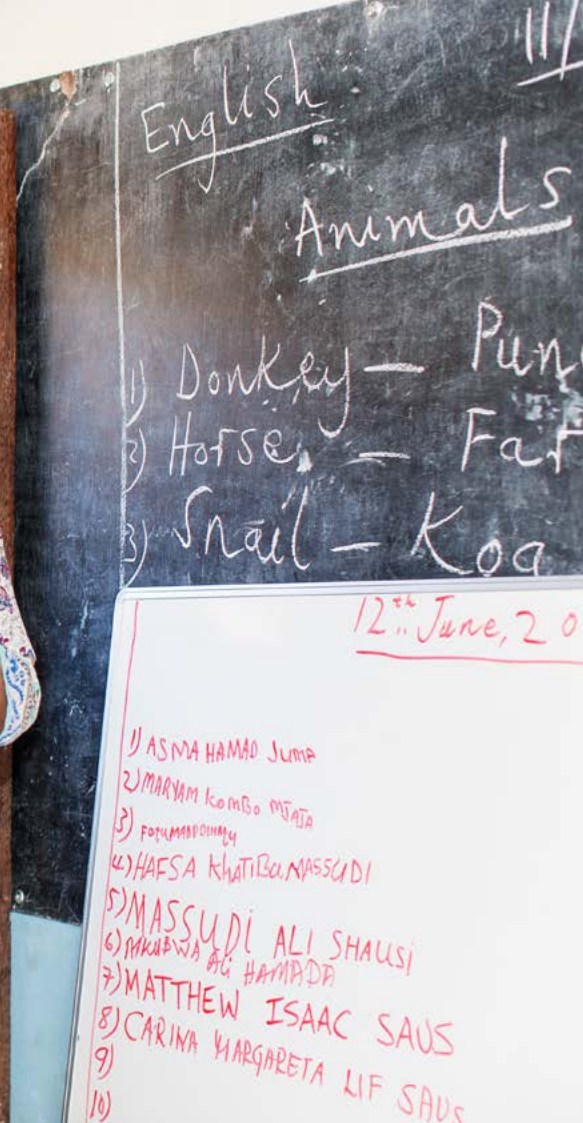 11/
English
Animals
1) Donkey – Pun
2) Horse. – Far
3) Snail – Koa
12th June, 20
1) ASMA HAMAD JUMA
2) MARYAM KOMBO MJAJA
3)
4) HAFSA KHATIBU MASSUDI
5) MASSUDI ALI SHAUSI
6) MKUBWA ALI HAMADA
7) MATTHEW ISAAC SAUS
8) CARINA MARGARETA LIF SAUS
9)
10)